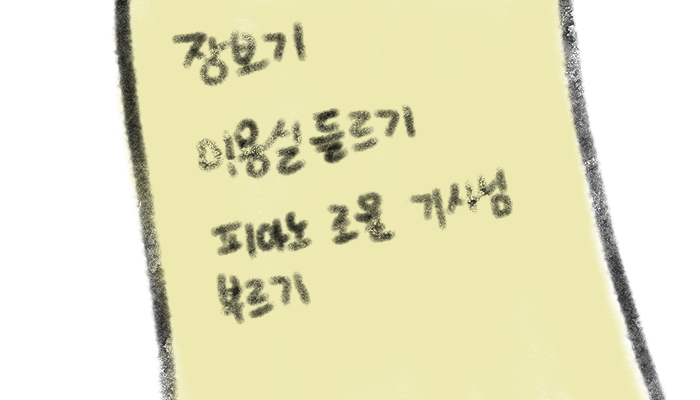 장보기
미용실 들르기
피아노 기사님
부르기